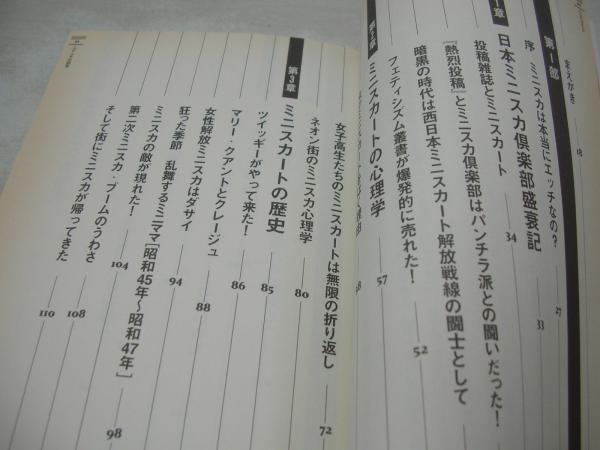 まえがき 18
第Ⅰ部
序 ミニスカは本当にエッチなの? 27
章 日本ミニスカ倶楽部盛衰記 33
投稿雑誌とミニスカート 34
『熱烈投稿』とミニスカ倶楽部はパンチラ派との闘いだった!
暗黒の時代は西日本ミニスカート解放戦線の闘士として 52
フェティシズム叢書が爆発的に売れた! 57
ミニスカートの心理学
女子高生たちのミニスカートは無限の折り返し 72
ネオン街のミニスカ心理学 80
第3章 ミニスカートの歴史
ツイッギーがやって来た! 85
マリー・クアントとクレージュ 86
女性解放ミニスカはダサイ 88
狂った季節 乱舞するミニママ[昭和45年〜昭和47年] 94
ミニスカの敵が現れた! 98
第二次ミニスカ・ブームのうわさ 104
そして街にミニスカが帰ってきた 108
110